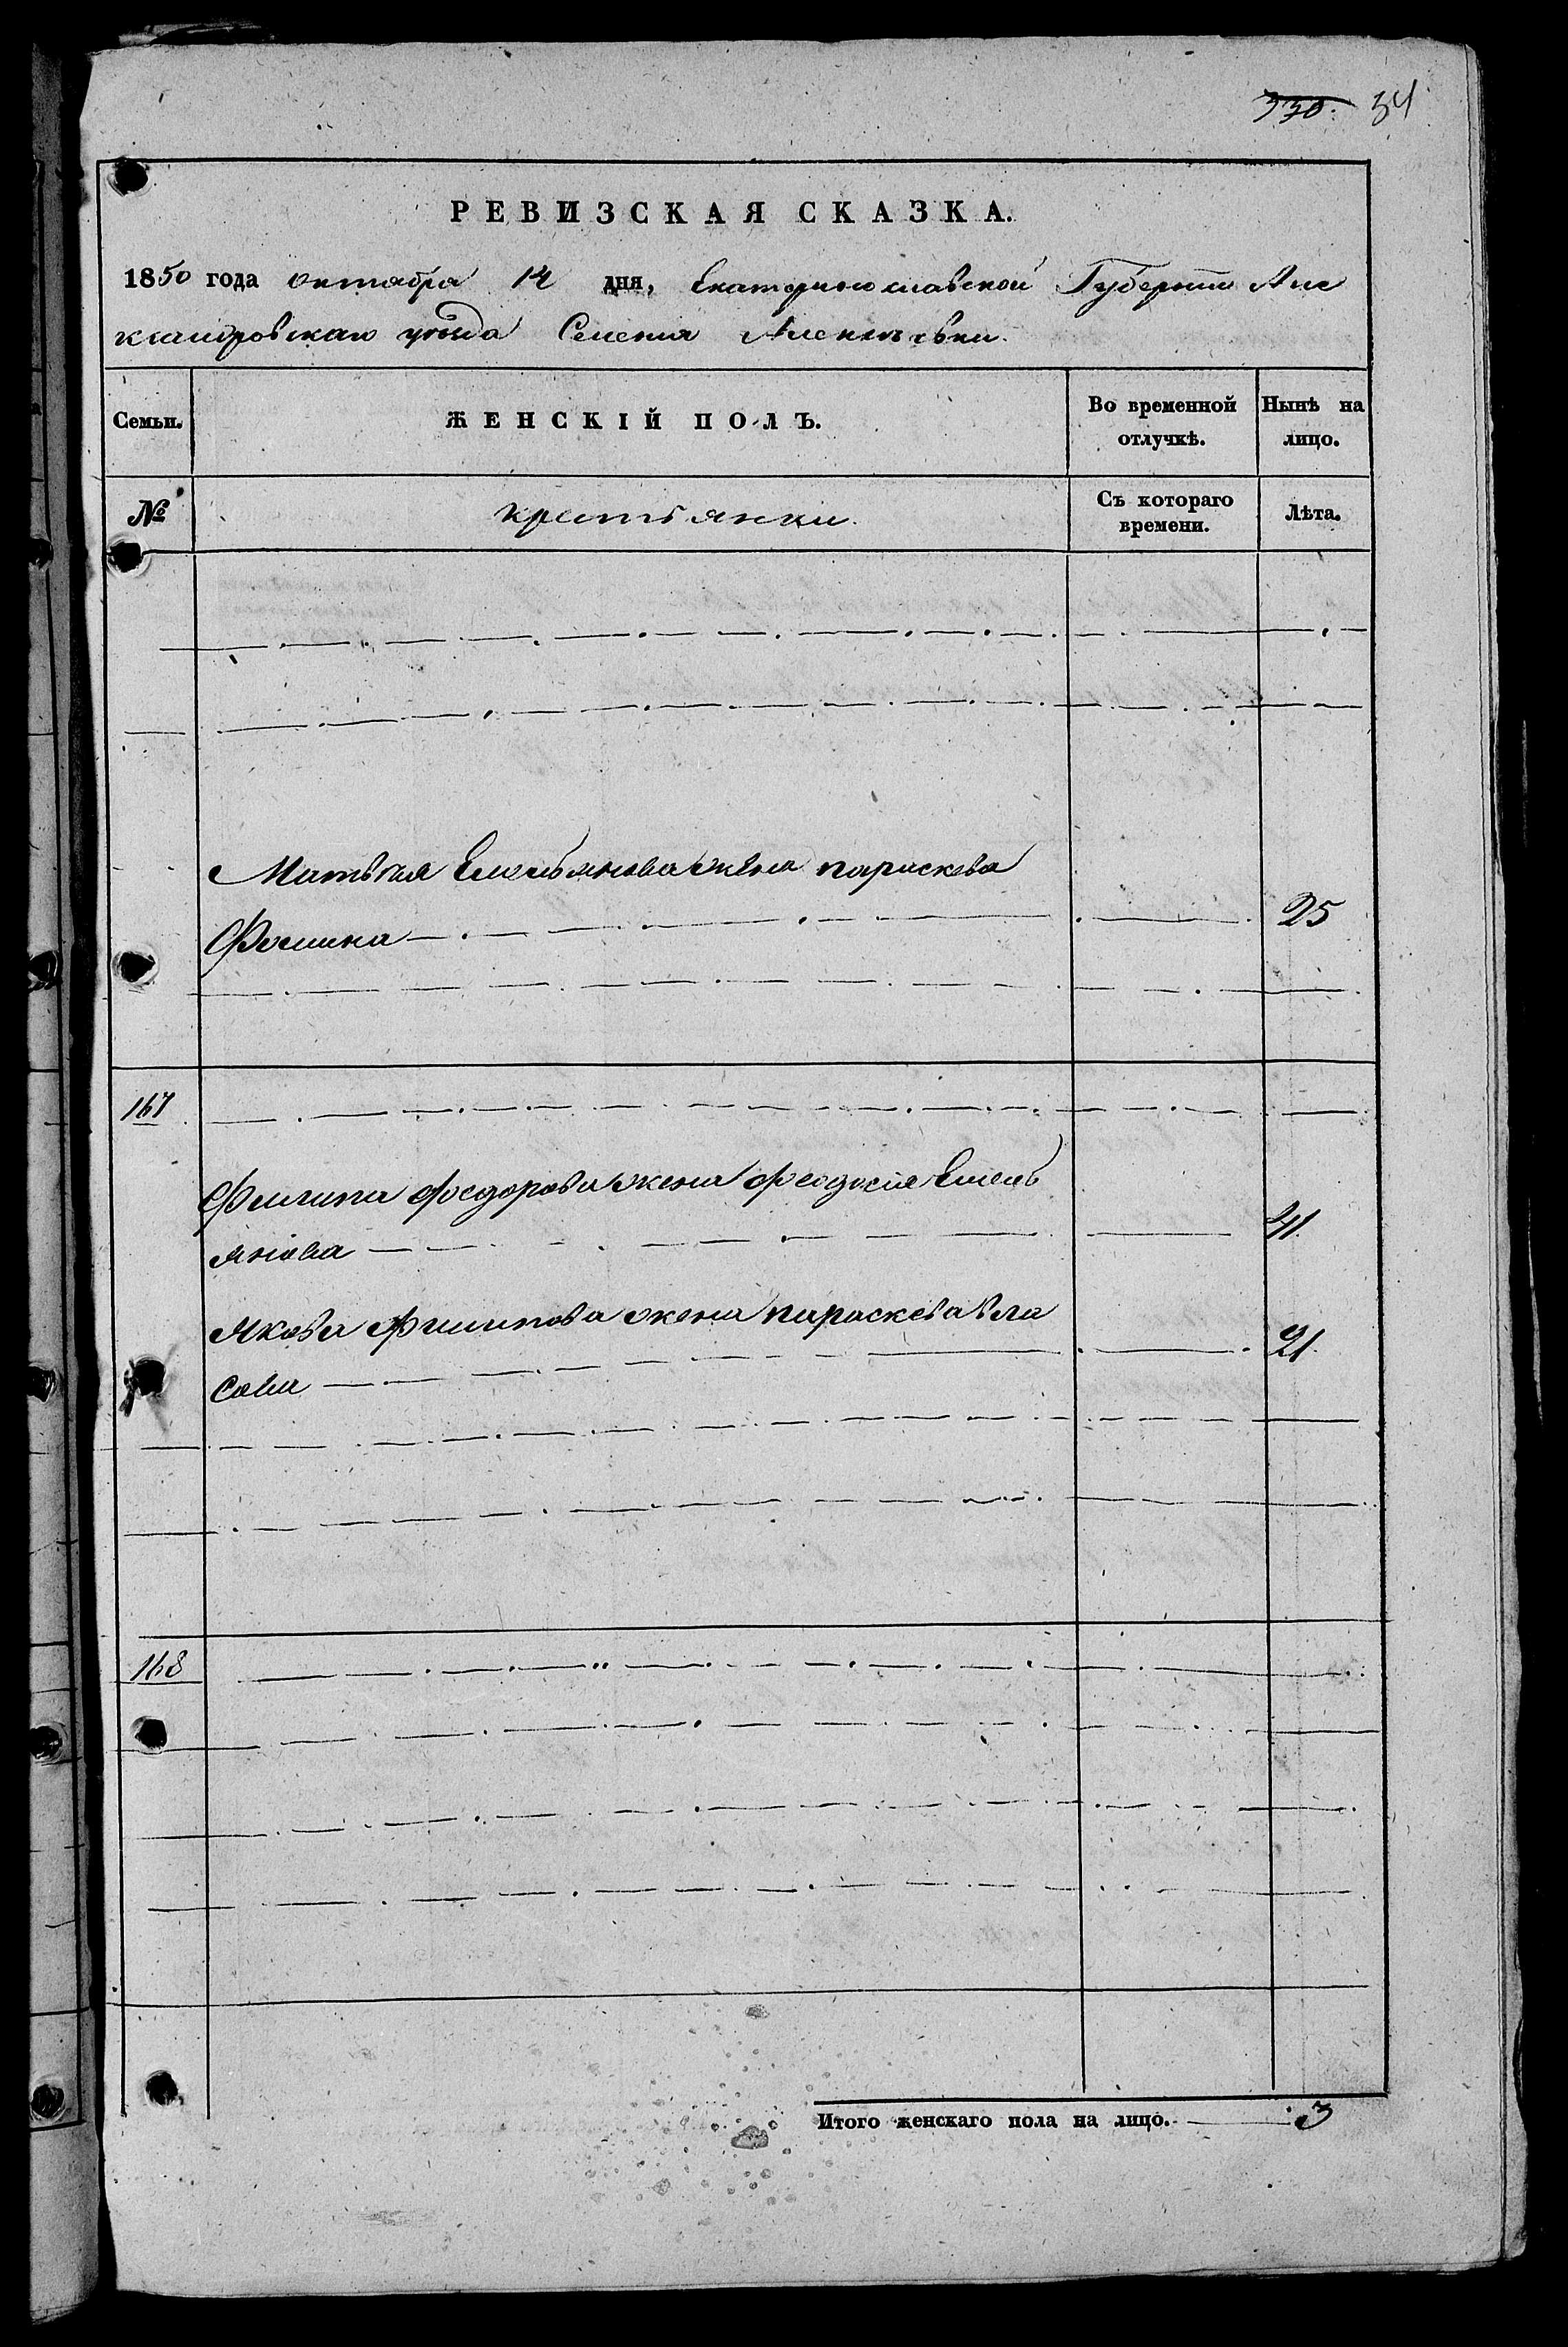 330. 34
РЕВИЗСКАЯ СКАЗКА.
1850 года октября 14 дня, Екатеринославской Губернии Алек
сандровскаго уезда Селения Алексеевки.
Семьи. ЖЕНСКІЙ ПОЛЪ. Во временной отлучкѣ. Нынѣ на лицо.
№ крестьянки. Съ котораго времени. Лѣта.
Матвея Емельянова жена параскева
Фомина 25
167
Филипа Федорова жена Феодосия Емель
янова 41.
Якова Филипова жена параскева Вла
сова 21.
168
Итого женскаго пола на лицо. 3